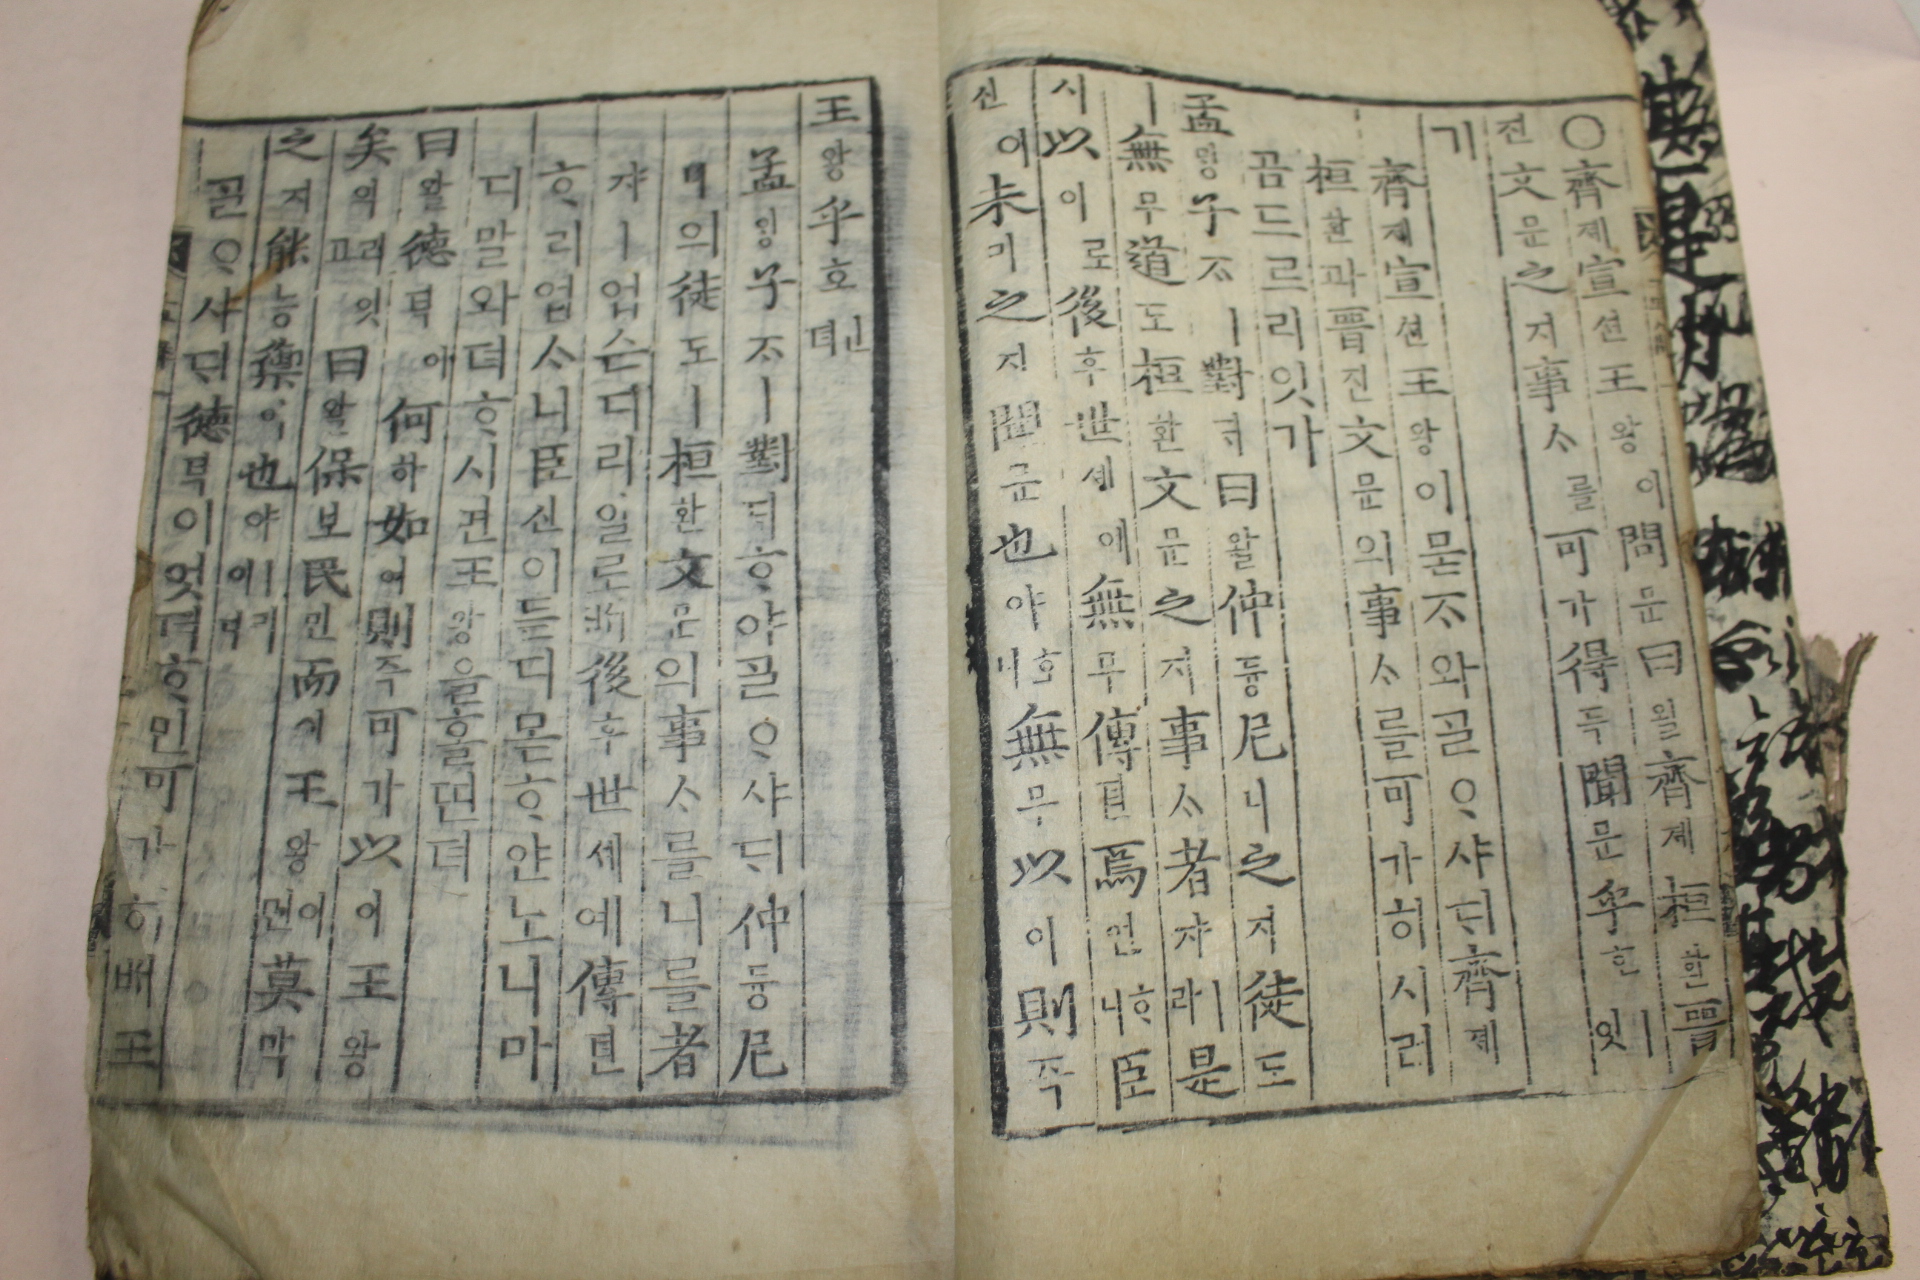 ○齊졔宣션王왕이問문曰왈齊졔桓환晉
진文문之지事ᄉᆞ를可가得득聞문乎호ㅣ잇
가
齊졔宣션王왕이묻ᄌᆞ와ᄀᆞᆯᄋᆞ샤ᄃᆡ齊졔
桓환과晉진文문의事ᄉᆞ를可가히시러
곰드르리잇가
孟ᄆᆡᆼ子ᄌᆞㅣ對ᄃᆡ曰왈仲듕尼니之지徒도
ㅣ無무道도桓환文문之지事ᄉᆞ者쟈ㅣ라是
시以이로後후世셰예無무傳뎐焉언ᄒᆞ니臣
신이未미之지聞문也야호니無무以이則즉
王왕乎호인뎌
孟ᄆᆡᆼ子ᄌᆞㅣ對ᄃᆡᄒᆞ야ᄀᆞᆯᄋᆞ샤ᄃᆡ仲듕尼
니의徒도ㅣ桓환文문의事ᄉᆞ를니를者
쟈ㅣ업슨디라일로ᄡᅥ後후世셰예傳뎐
ᄒᆞ리업ᄉᆞ니臣신이듣디몯ᄒᆞ얀노니마
디말와뎌ᄒᆞ시면王왕을홀띤뎌
曰왈德덕이何하如여則즉可가以이王왕
矣의리잇고曰왈保보民민而이王왕이면莫막
之지能능禦어也야ㅣ리이다
ᄀᆞᆯᄋᆞ샤ᄃᆡ德덕이엇더ᄒᆞ면可가히ᄡᅥ王